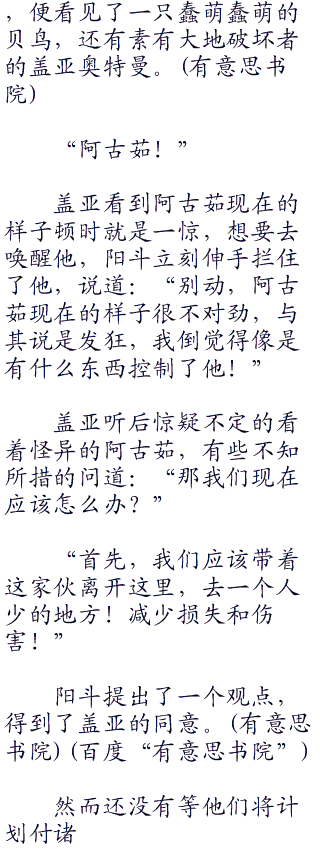 ，便看见了一只蠢萌蠢萌的
贝鸟，还有素有大地破坏者
的盖亚奥特曼。(有意思书
院)
“阿古茹！”
盖亚看到阿古茹现在的
样子顿时就是一惊，想要去
唤醒他，阳斗立刻伸手拦住
了他，说道：“别动，阿古
茹现在的样子很不对劲，与
其说是发狂，我倒觉得像是
有什么东西控制了他！”
盖亚听后惊疑不定的看
着怪异的阿古茹，有些不知
所措的问道：“那我们现在
应该怎么办？”
“首先，我们应该带着
这家伙离开这里，去一个人
少的地方！减少损失和伤
害！”
阳斗提出了一个观点，
得到了盖亚的同意。(有意思
书院)(百度“有意思书院”)
然而还没有等他们将计
划付诸